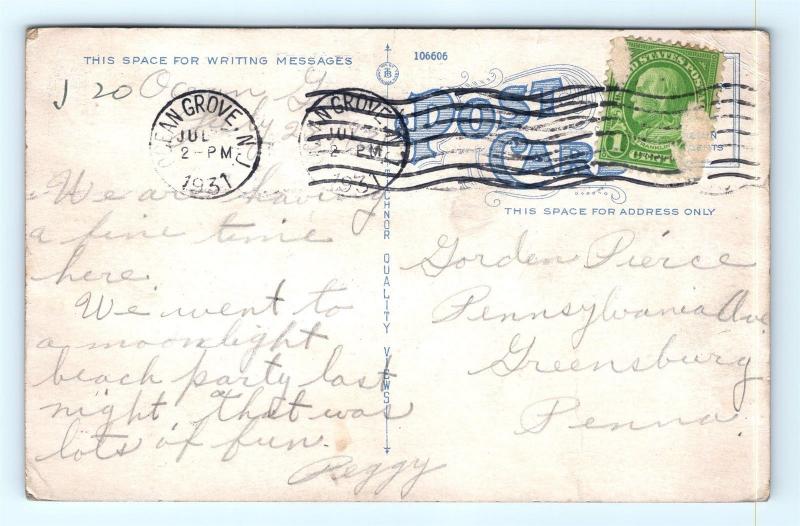 THIS SPACE FOR WRITING MESSAGES
106606
J 20
Ocean G
OCEAN GROVE, N.J.
JUL
2-PM
1931
OCEAN GROVE, N.J.
JUL
2-PM
1931
POST
CARD
1
FRANKLIN
THIS SPACE FOR ADDRESS ONLY
TICHNOR QUALITY VIEWS
We are having
a fine time
here.
We went to
a moonlight
beach party last
night, that was
lots of fun.
Peggy
Gorden Pierce
Pennsylvania Ave
Greensburg
Penna